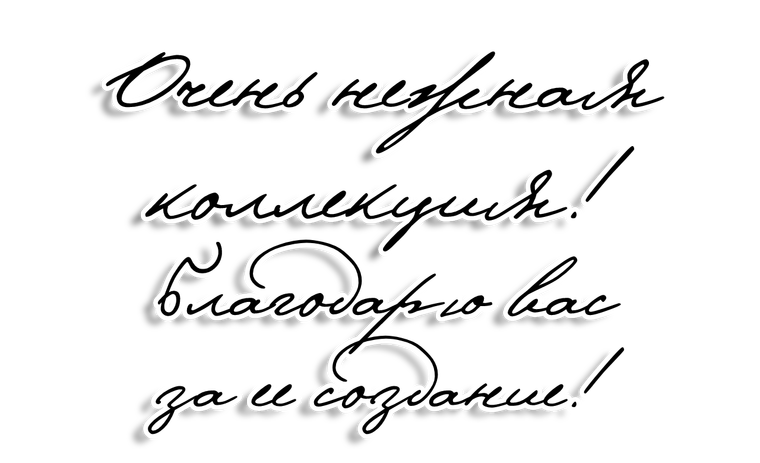 Очень нежная
коллекция!
Благодарю вас
за ее создание!